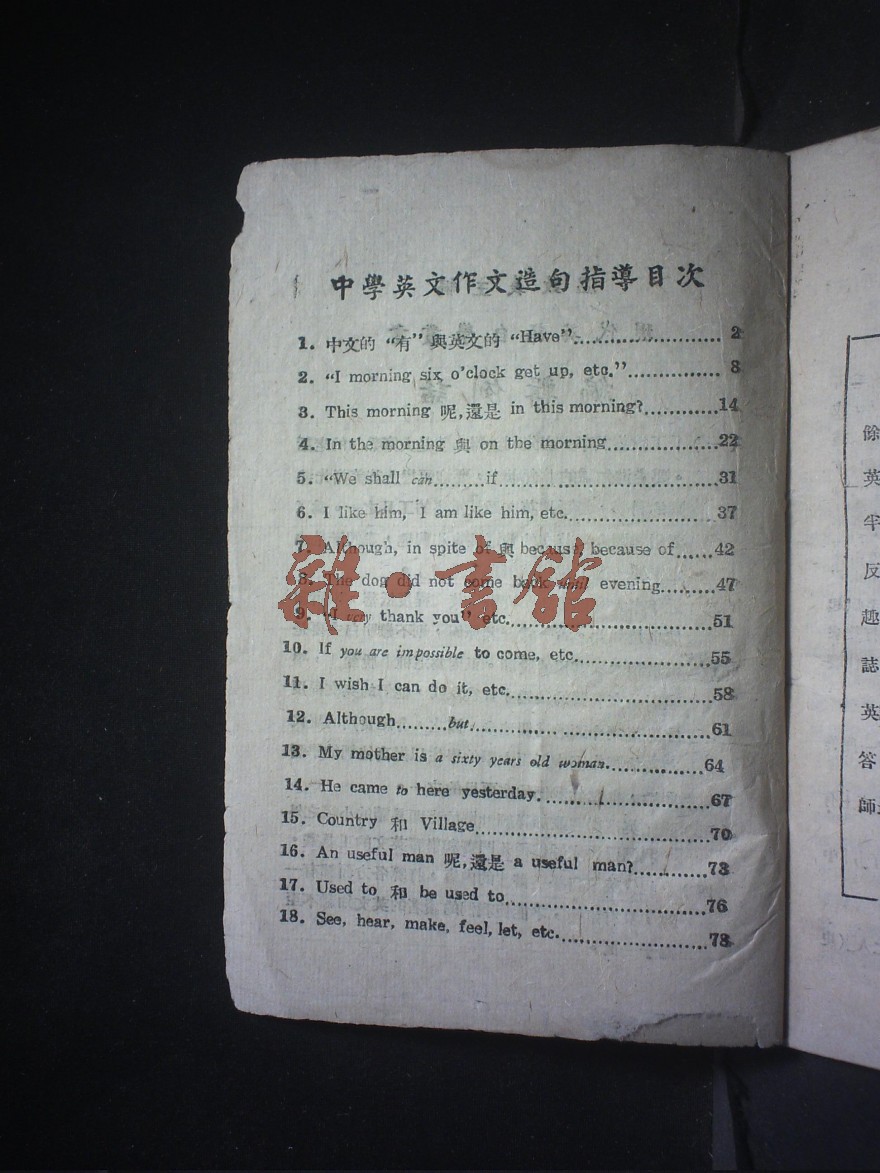 中學英文作文造句指導目次
1. 中文的 “有” 與英文的 “Have”..........................2
2. “I morning six o'clock get up, etc.”................8
3. This morning 呢,還是 in this morning?............14
4. In the morning 與 on the morning..................22
5. “We shall can.........if......................................31
6. I like him, I am like him, etc..........................37
7. Although, in spite of 與 because, because of......42
8. The dog did not come back until evening..........47
9. “I very thank you” etc...................................51
10. If you are impossible to come, etc...................55
11. I wish I can do it, etc....................................58
12. Although.........but.......................................61
13. My mother is a sixty years old woman................64
14. He came to here yesterday............................67
15. Country 和 Village.......................................70
16. An useful man 呢,還是 a useful man?.............73
17. Used to 和 be used to...................................76
18. See, hear, make, feel, let, etc.........................78
雜·書館
餘
英
半
反
趣
誌
英
答
師